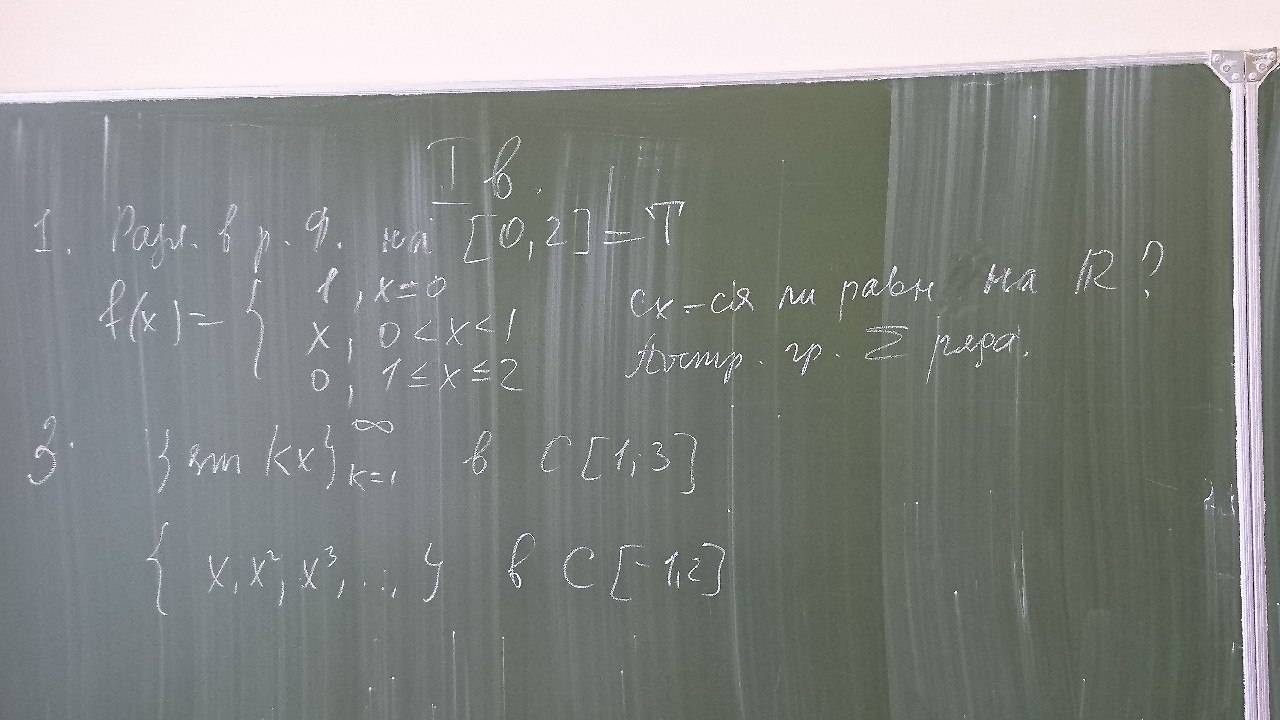 I в.
1. Разл. в р. Ф. на [0,2]=T
f(x)={ 1, x=0
x, 0<x<1
0, 1≤x≤2
сх-ся ли равн на ℝ?
Постр. гр. Σ ряда.
3. {sin kx}_{k=1}^∞ в C[1,3]
{x, x², x³, ...} в C[-1,2]